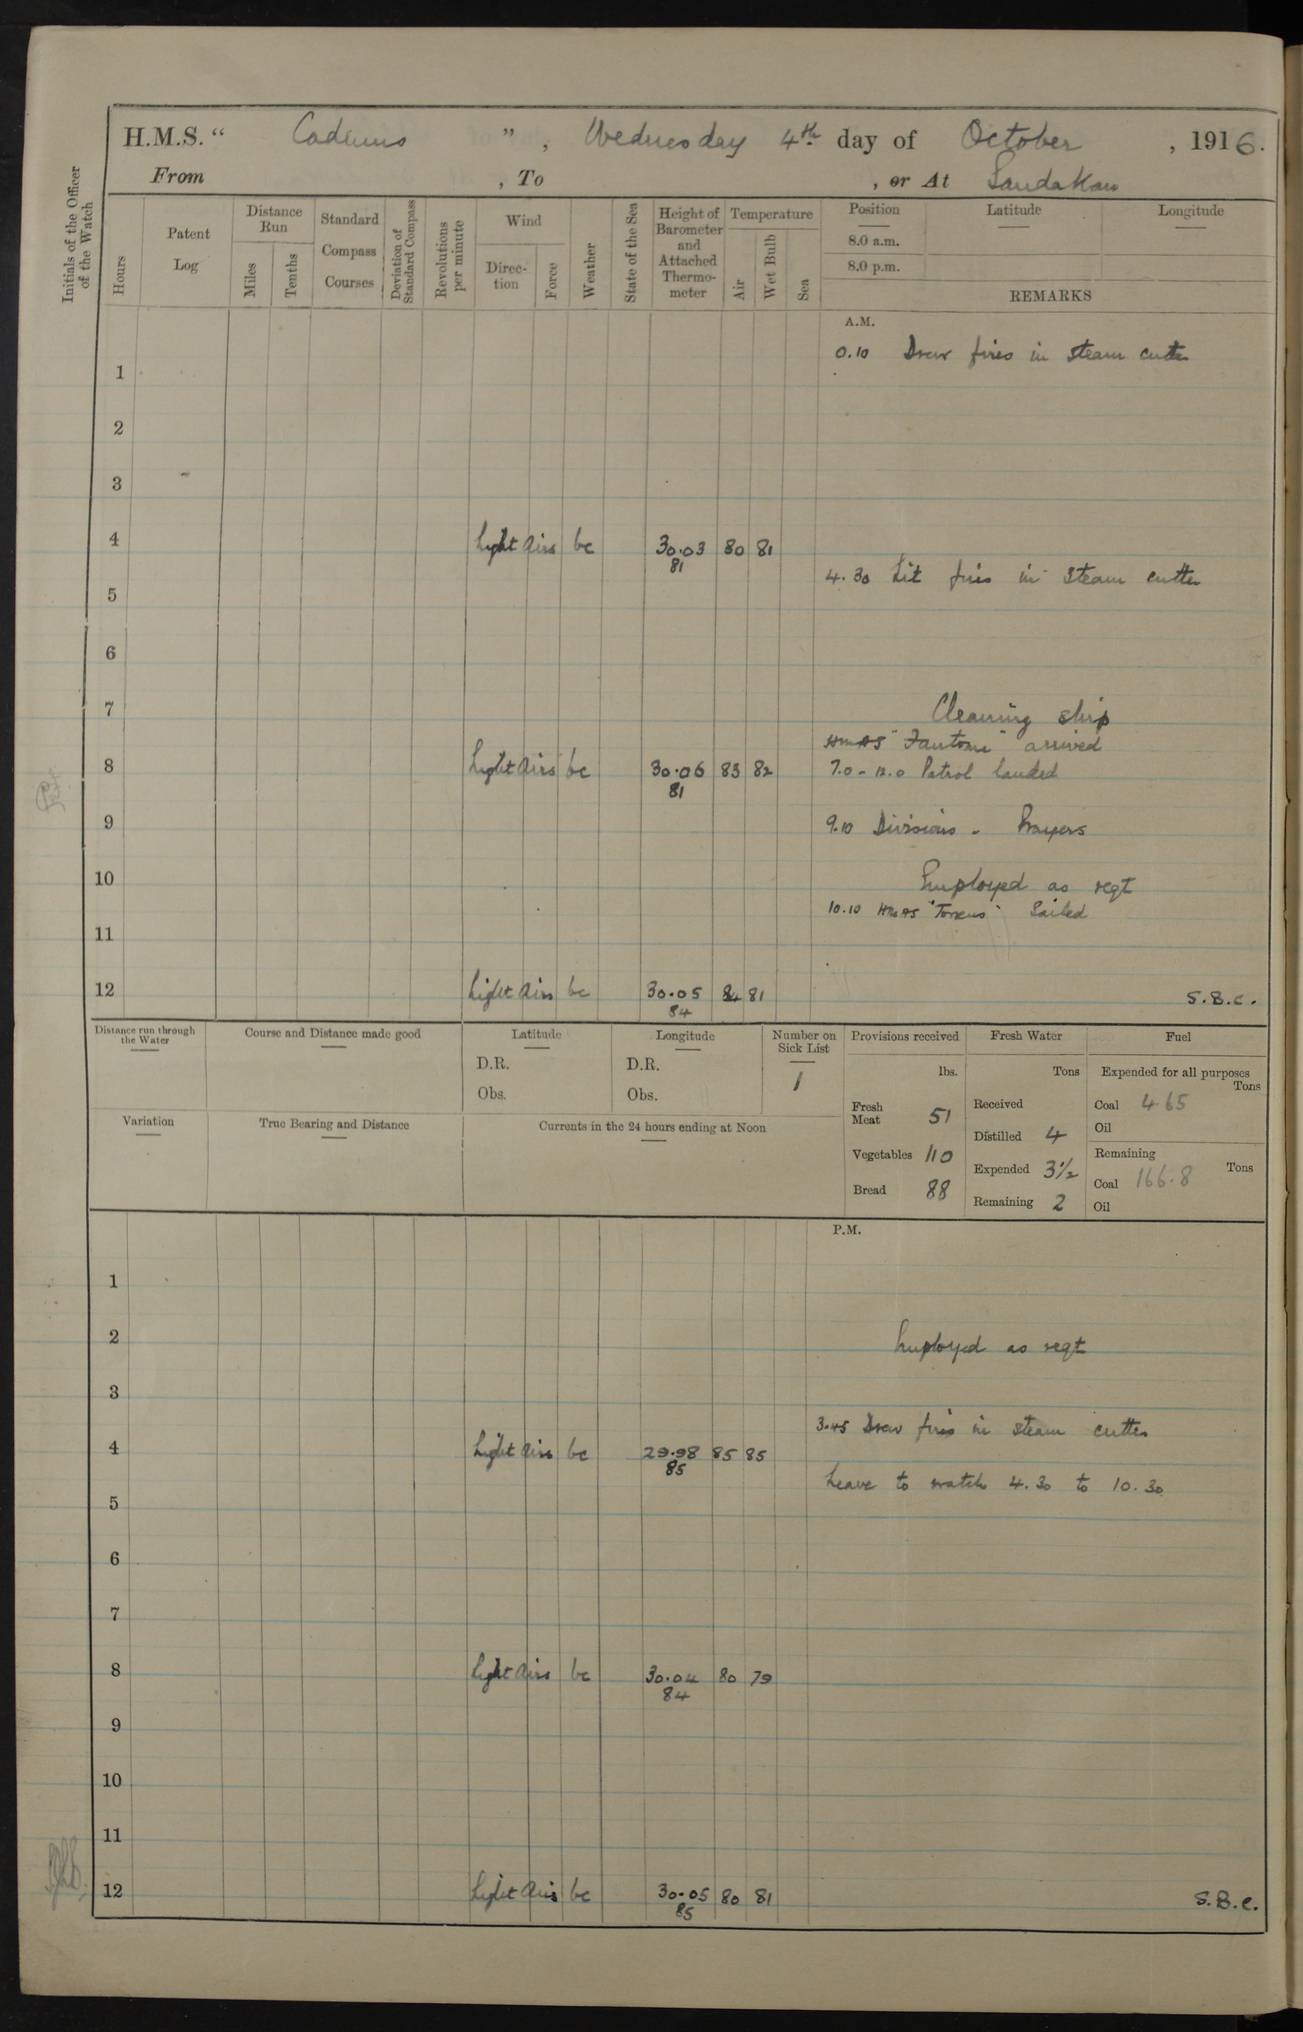 H.M.S. “ Cadmus ” , Wednesday 4th day of October , 1916.
From , To , or At Sandakan
Initials of the Officer of the Watch
Hours
Patent Log
Distance Run
Miles
Tenths
Standard Compass Courses
Deviation of Standard Compass
Revolutions per minute
Wind
Direction
Force
Weather
State of the Sea
Height of Barometer and Attached Thermometer
Temperature
Air
Wet Bulb
Sea
Position Latitude Longitude
8.0 a.m.
8.0 p.m.
REMARKS
A.M.
0.10 Drew fires in steam cutter
1
2
3
4 Light airs bc 30.03 80 81
81
4.30 Lit fires in steam cutter
5
6
7 Cleaning ship
HMAS "Fantome" arrived
8 Light airs bc 30.06 83 82 7.0 - 12.0 Patrol landed
81
9 9.10 Divisions - Prayers
10 Employed as reqt
10.10 HMAS "Torrens" Sailed
11
12 Light airs bc 30.05 84 81 S.B.C.
84
Distance run through the Water
Course and Distance made good
Latitude
D.R.
Obs.
Longitude
D.R.
Obs.
Number on Sick List
1
Provisions received
lbs.
Fresh Meat 51
Vegetables 110
Bread 88
Fresh Water
Tons
Received
Distilled 4
Expended 3½
Remaining 2
Fuel
Expended for all purposes
Tons
Coal 4.65
Oil
Remaining
Tons
Coal 166.8
Oil
Variation
True Bearing and Distance
Currents in the 24 hours ending at Noon
P.M.
1
2 Employed as reqt
3
3.45 Drew fires in steam cutter
4 Light airs bc 29.98 85 85
85
Leave to watch 4.30 to 10.30
5
6
7
8 Light airs bc 30.04 80 79
84
9
10
11
12 Light airs bc 30.05 80 81 S.B.C.
85